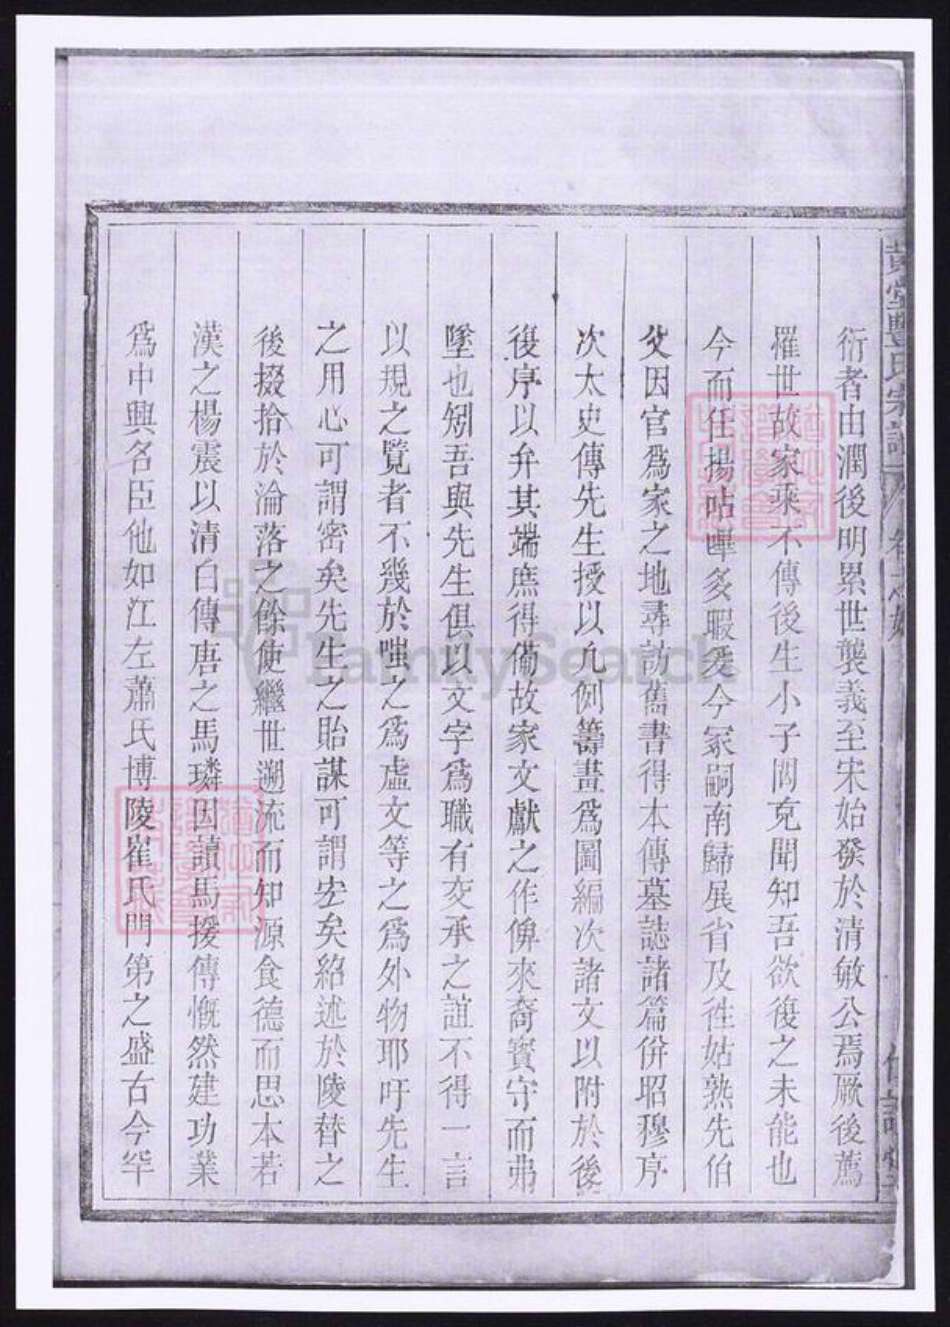 黃堂豐氏宗譜
衍者由潤後明累世襲義至宋始發於清敏公焉厥後薦
罹世故家乘不傳後生小子罔克聞知吾欲復之未能也
今而任揚呫嗶多暇爰令冢嗣南歸展省及徃姑熟先伯
父因官爲家之地尋訪舊書得本傳墓誌諸篇併昭穆序
次太史傳先生授以允例籌畫爲圖編次諸文以附於後
復序以弁其端庶得備故家文獻之作俾來裔寶守而弗
墜也矧吾與先生俱以文字爲職有交承之誼不得一言
以規之覽者不幾於嗤之爲虛文等之爲外物耶吁先生
之用心可謂密矣先生之貽謀可謂宏矣紹述於陵替之
後掇拾於淪落之餘使繼世遡流而知源食德而思本若
漢之楊震以清白傳唐之馬璘因讀馬援傳慨然建功業
爲中興名臣他如江左蕭氏博陵崔氏門第之盛古今罕
FamilySearch